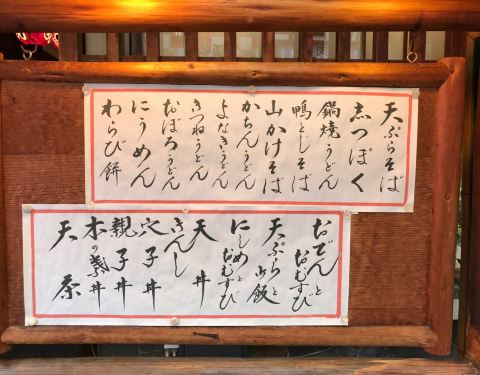 天ぷらそば
志っぽく
鍋焼うどん
鴨とじそば
山かけそば
かちんうどん
よなきうどん
きつねうどん
おぼろうどん
にうめん
わらび餅
おでんと
おむすび
天ぷらと
御飯
にしめと
おむすび
天丼
きんし
穴子丼
親子丼
木の葉丼
天茶